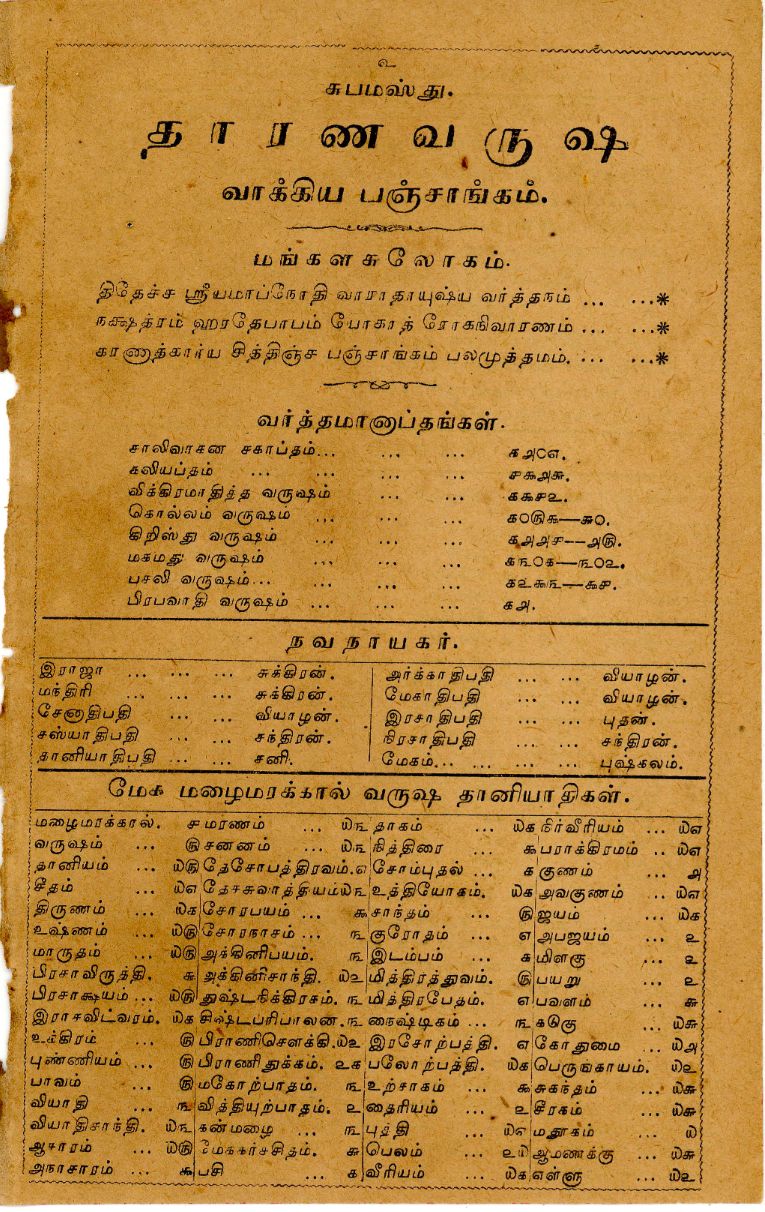 உ
சுபமஸ்து.
தாரணவருஷ
வாக்கிய பஞ்சாங்கம்.
மங்களசுலோகம்.
திதேச்ச ஸ்ரீயமாப்நோதி வாராதாயுஷ்ய வர்த்தநம் ... ...*
நக்ஷத்ரம் ஹரதேபாபம் யோகாத் ரோகநிவாரணம் ... ...*
காணுத்கார்ய சித்திஞ்ச பஞ்சாங்கம் பலமுத்தமம். ... ...*
வர்த்தமானாப்தங்கள்.
சாலிவாகன சகாப்தம்... ... ... ௧௮௦௭.
கலியப்தம் ... ... ... ... ௪௯௮௬.
விக்கிரமாதித்த வருஷம் ... ... ௧௯௪௨.
கொல்லம் வருஷம் ... ... ... ௧௦௫௯—௬௦.
கிறிஸ்து வருஷம் ... ... ... ௧௮௮௪—௮௫.
மகமது வருஷம் ... ... ... ௧௩௦௧—௩௦௨.
பசலி வருஷம்... ... ... ௧௨௯௩—௯௪.
பிரபவாதி வருஷம் ... ... ... ௧௮.
நவநாயகர்.
இராஜா ... ... ... சுக்கிரன். அர்க்காதிபதி ... ... வியாழன்.
மந்திரி ... ... ... சுக்கிரன். மேகாதிபதி ... ... வியாழன்.
சேனாதிபதி ... ... வியாழன். இரசாதிபதி ... ... புதன்.
சஸ்யாதிபதி ... ... சந்திரன். நிரசாதிபதி ... ... சந்திரன்.
தானியாதிபதி ... ... சனி. மேகம்... ... ... புஷ்கலம்.
மேக மழைமரக்கால் வருஷ தானியாதிகள்.
மழைமரக்கால். ௪ மரணம் ... ௰௩ தாகம் ... ௰௧ நிர்வீரியம் ... ௰௭
வருஷம் ... ௫ சனனம் ... ௰௩ நித்திரை ... ௯ பராக்கிரமம் .. ௰௭
தானியம் ... ௰௫ தேசோபத்திரவம். ௭ சோம்புதல் ... ௧ குணம் ... ௮
சீதம் ... ௰௭ தேசசுவாத்தியம் ௰௩ உத்தியோகம். ௰௧ அவகுணம் ... ௰௭
திருணம் ... ௰௧ சோரபயம் ... ௯ சாந்தம் ... ௫ ஜயம் ... ௰௧
உஷ்ணம் ... ௰௫ சோரநாசம் ... ௩ குரோதம் ... ௭ அபஜயம் ... ௨
மாருதம் ... ௰௫ அக்கினிபயம். ௩ இடம்பம் ... ௧ மிளகு ... ௨
பிரசாவிருத்தி. ௬ அக்கினிசாந்தி. ௰௨ மித்திரத்துவம். ௫ பயறு ... ௨
பிரசாக்ஷயம் ... ௰௫ துஷ்டநிக்கிரகம். ௩ மித்திரபேதம். ௭ பவளம் ... ௬
இராசவிட்வரம். ௰௧ சிஷ்டபரிபாலன. ௩ நைஷ்டிகம் ... ௩ கடுகு ... ௰௬
உக்கிரம் ... ௫ பிராணிசௌக்கி. ௰௨ இரசோற்பத்தி. ௭ கோதுமை ... ௰௮
புண்ணியம் ... ௫ பிராணிதுக்கம். ௨௧ பலோற்பத்தி. ௰௧ பெருங்காயம். ௰௨
பாவம் ... ௫ மகோற்பாதம். ௩ உற்சாகம் ... ௯ சுகந்தம் ... ௰௬
வியாதி ... ௩ வித்தியுற்பாதம். ௨ தைரியம் ... ௨ சீரகம் ... ௰௬
வியாதிசாந்தி. ௰௩ கன்மழை ... ௩ புத்தி ... ௰௭ மதூகம் ... ௰
ஆசாரம் ... ௰௫ மேககர்ச்சிதம். ௬ பெலம் ... ௨௰ ஆமணக்கு ... ௰௬
அநாசாரம் ... ௯ பசி ... ௧ வீரியம் ... ௰௧ எள்ளு ... ௰௨